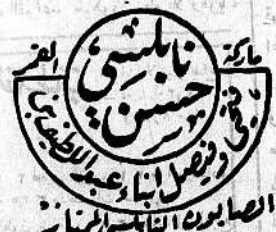 ماركة القمر
نابلسي
حسن
فتحي وفيصل ابناء عبد اللطيف
الصابون النابلسي الممتاز